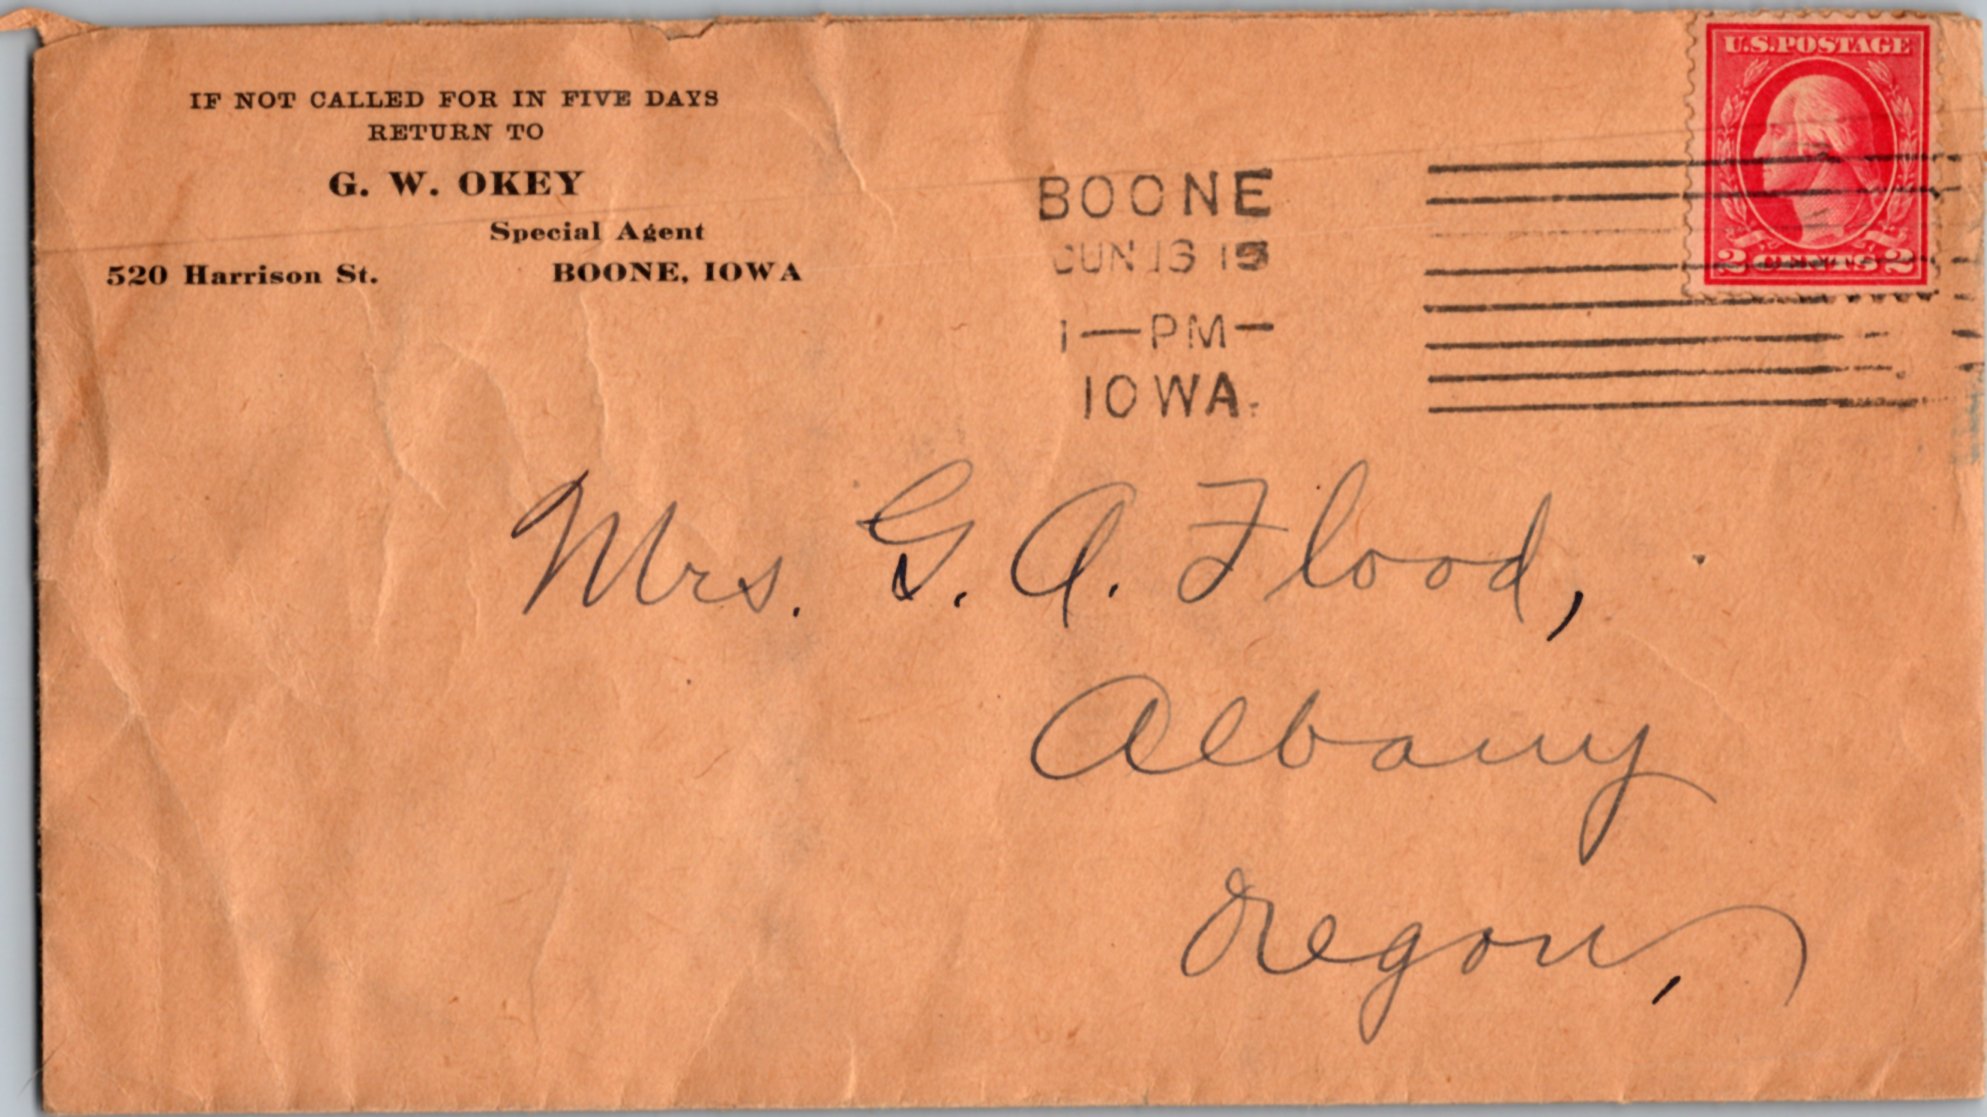 IF NOT CALLED FOR IN FIVE DAYS
RETURN TO
G. W. OKEY
Special Agent
520 Harrison St. BOONE, IOWA
BOONE
JUN 13 19
1—PM—
IOWA.
U.S. POSTAGE
2 CENTS 2
Mrs. G. A. Flood,
Albany
Oregon,